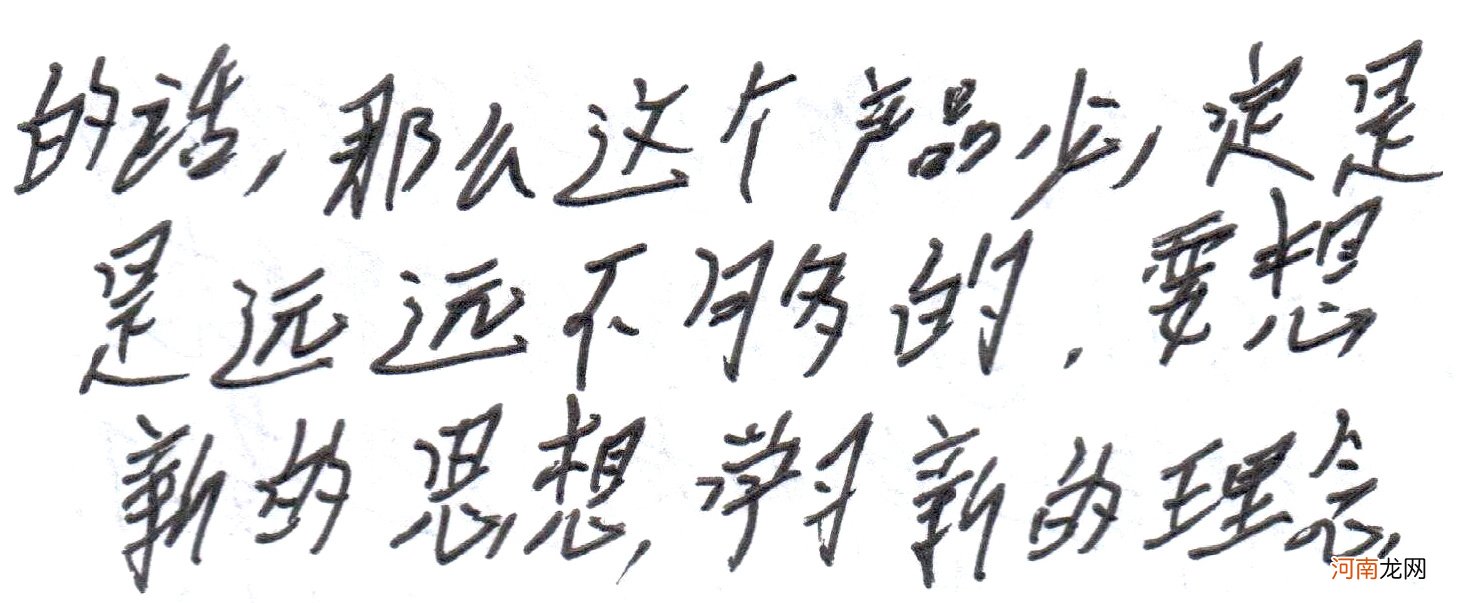 的话,那么这个产品必,定是
是远远不够的.要想
新的思想,学习新的理念,
河南龙网